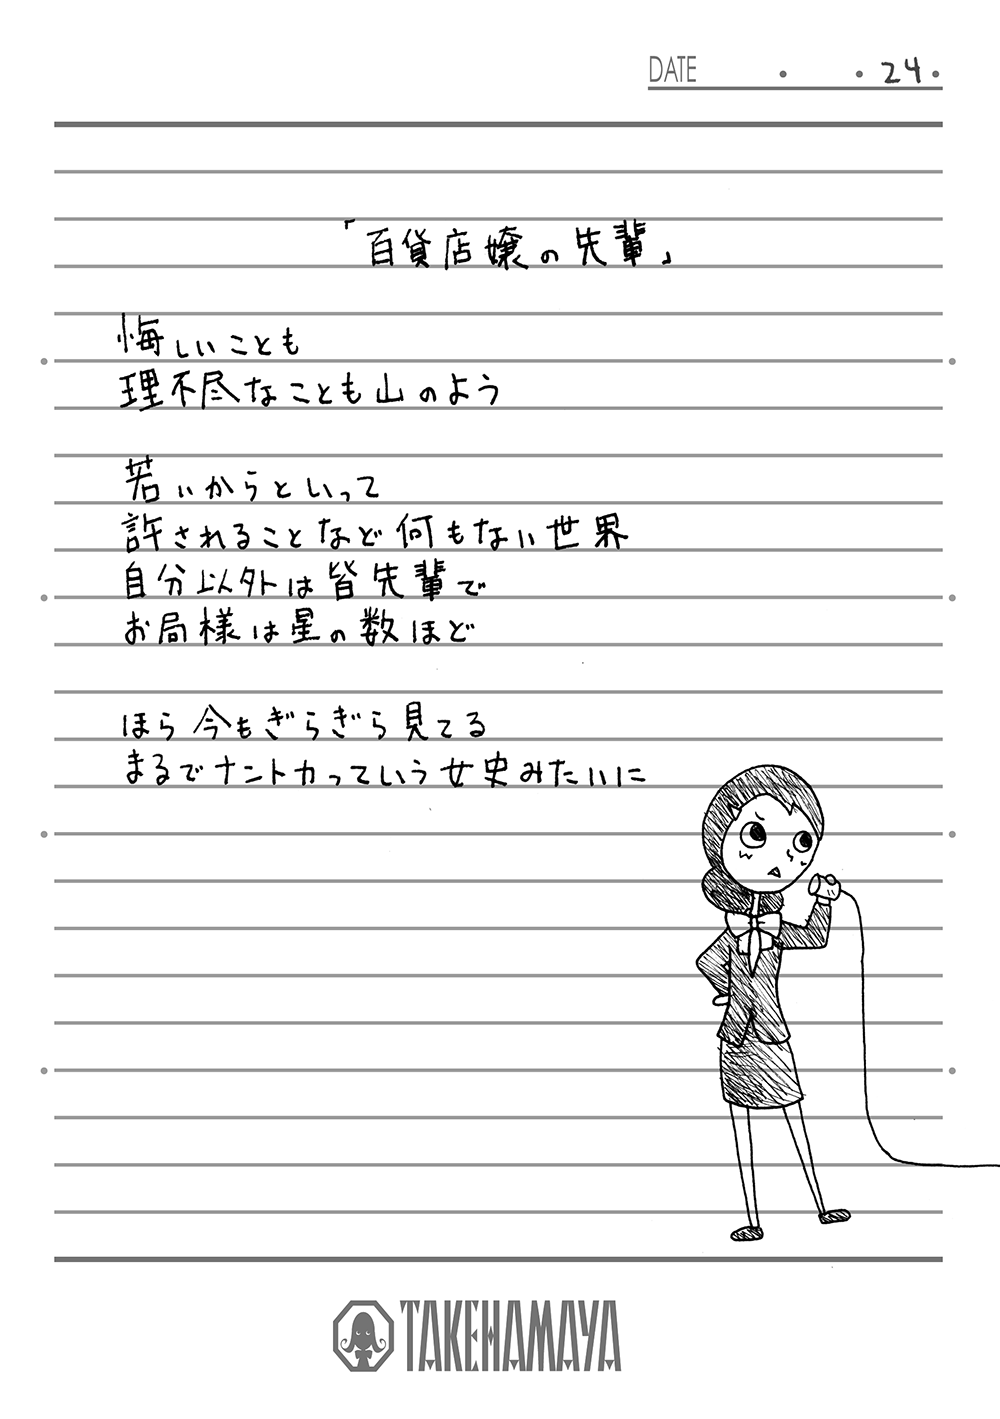 DATE ・ ・24・
「百貨店嬢の先輩」
悔しいことも
理不尽なことも山のよう
若いからといって
許されることなど何もない世界
自分以外は皆先輩で
お局様は星の数ほど
ほら今もぎらぎら見てる
まるでナントカっていう女史みたいに
TAKEHAMAYA